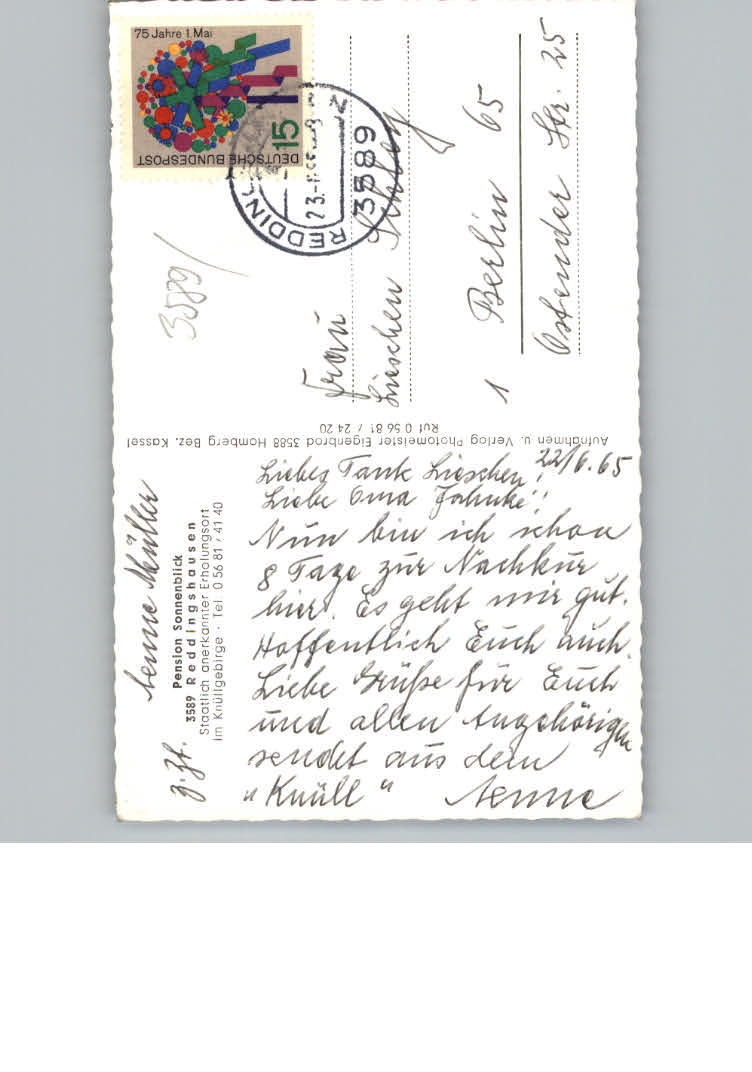 z. Zt. Aenne Müller
Pension Sonnenblick
3589 Reddingshausen
Staatlich anerkannter Erholungsort
im Knüllgebirge · Tel. 0 56 81 / 41 40
22/6.65
Liebes Tante Lieschen!
Liebe Oma Jahnke!
Nun bin ich schon
8 Tage zur Nachkur
hier. Es geht mir gut.
Hoffentlich Euch auch.
Liebe Grüße für Euch
und allen Angehörigen
sendet aus dem
„Knüll“ Aenne
Aufnahmen u. Verlag Photomeister Eigenbrod 3588 Homberg Bez. Kassel
Ruf 0 56 81 / 24 20
75 Jahre 1. Mai
15
DEUTSCHE BUNDESPOST
3589
23.
3589
Frau
Lieschen
1 Berlin 65
Ostender Str. 25